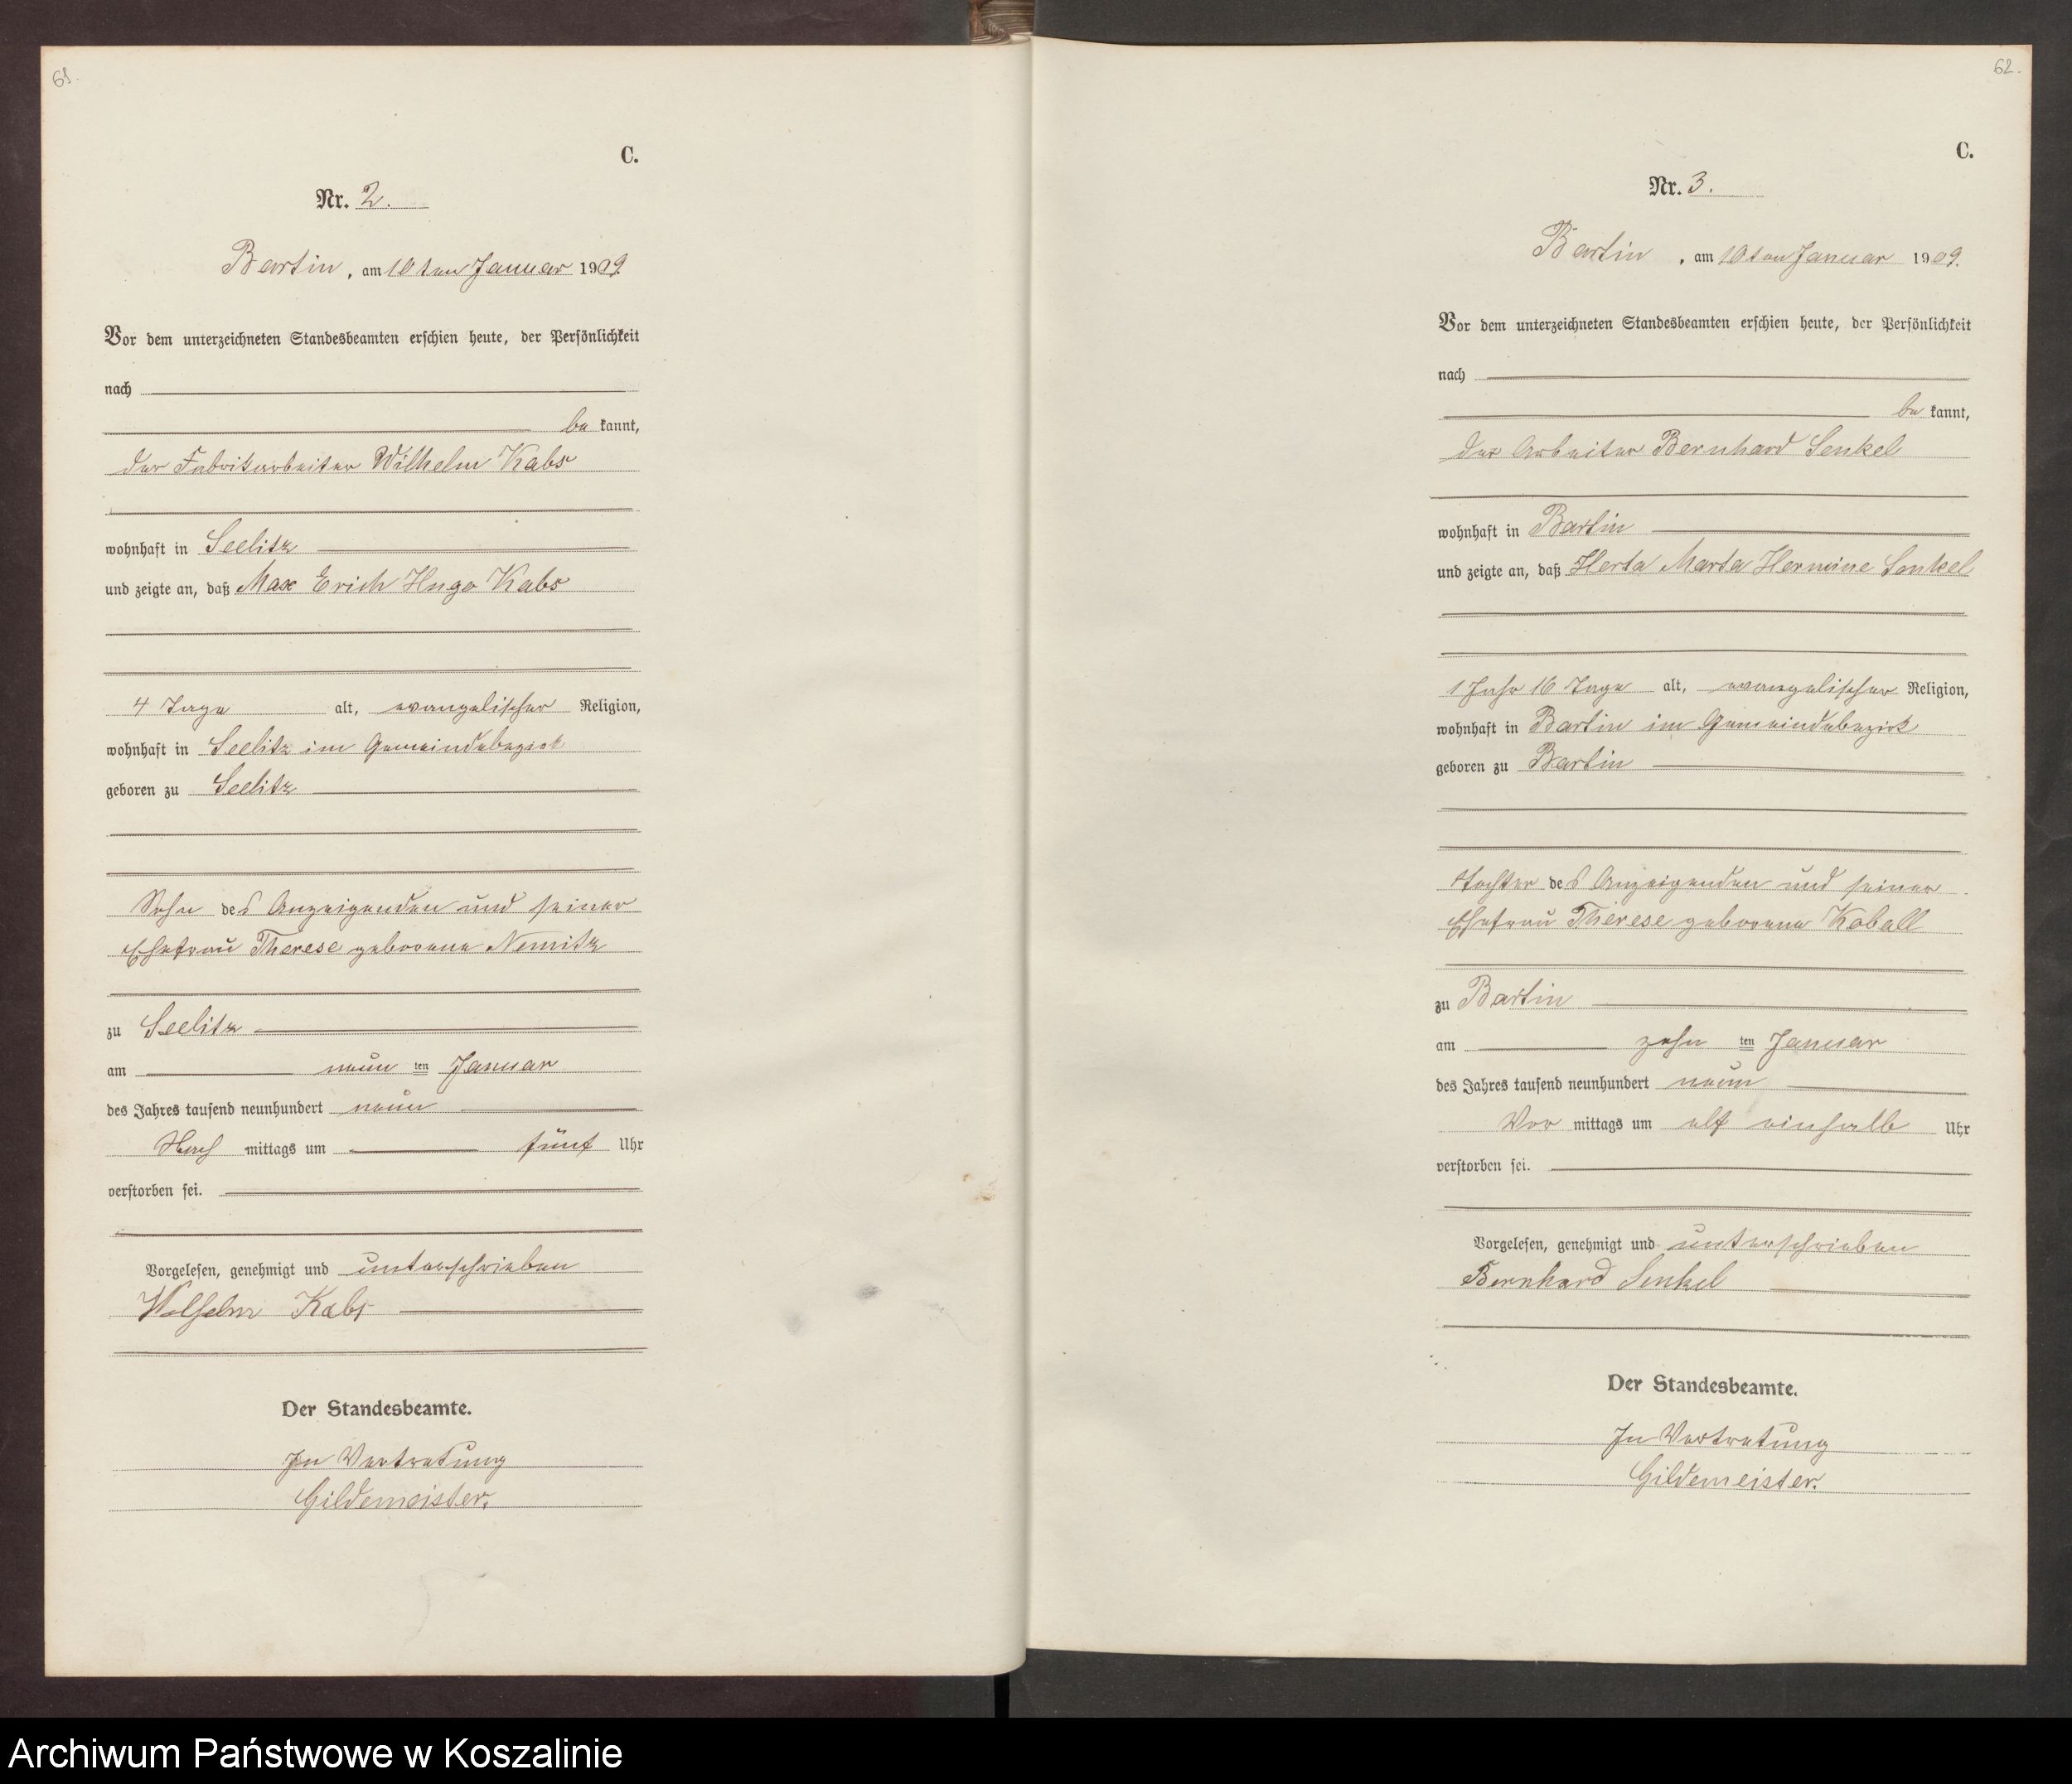 61.
C.
Nr. 2.
Bartin, am 10ten Januar 1909.
Vor dem unterzeichneten Standesbeamten erschien heute, der Persönlichkeit
nach
be kannt,
der Fabrikarbeiter Wilhelm Kabs
wohnhaft in Seelitz
und zeigte an, daß Max Erich Hugo Kabs
4 Tage alt, evangelischer Religion,
wohnhaft in Seelitz im Gemeindebezirk
geboren zu Seelitz
Sohn des Anzeigenden und seiner
Ehefrau Therese geborene Nemitz
zu Seelitz
am neun ten Januar
des Jahres tausend neunhundert neun
Nach mittags um fünf Uhr
verstorben sei.
Vorgelesen, genehmigt und unterschrieben
Wilhelm Kabs
Der Standesbeamte.
In Vertretung
Gildemeister.
62.
C.
Nr. 3.
Bartin, am 10ten Januar 1909.
Vor dem unterzeichneten Standesbeamten erschien heute, der Persönlichkeit
nach
be kannt,
der Arbeiter Bernhard Senkel
wohnhaft in Bartin
und zeigte an, daß Herta Marta Hermine Senkel
1 Jahr 16 Tage alt, evangelischer Religion,
wohnhaft in Bartin im Gemeindebezirk
geboren zu Bartin
Tochter des Anzeigenden und seiner
Ehefrau Therese geborene Koball
zu Bartin
am zehn ten Januar
des Jahres tausend neunhundert neun
Vor mittags um elf einhalb Uhr
verstorben sei.
Vorgelesen, genehmigt und unterschrieben
Bernhard Senkel
Der Standesbeamte.
In Vertretung
Gildemeister.
Archiwum Państwowe w Koszalinie